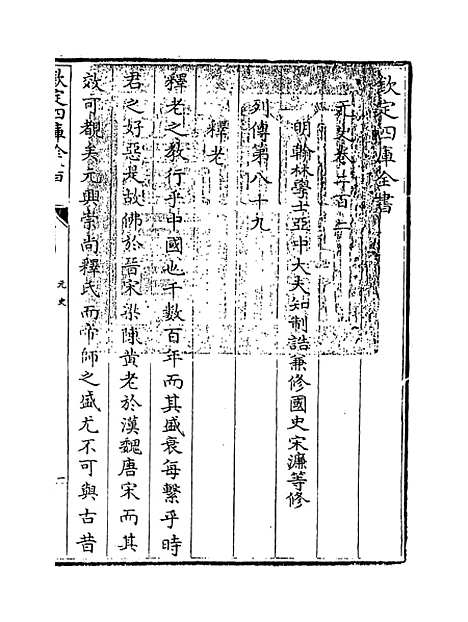 欽定四庫全書
元史卷二百二
明翰林學士亞中大夫知制誥兼修國史宋濂等修
列傳第八十九
釋老
釋老之教行乎中國也千數百年而其盛衰每繫乎時
君之好惡是故佛於晉宋梁陳黃老於漢魏唐宋而其
效可觀矣元興崇尚釋氏而帝師之盛尤不可與古昔
欽定四庫全書
元史
一